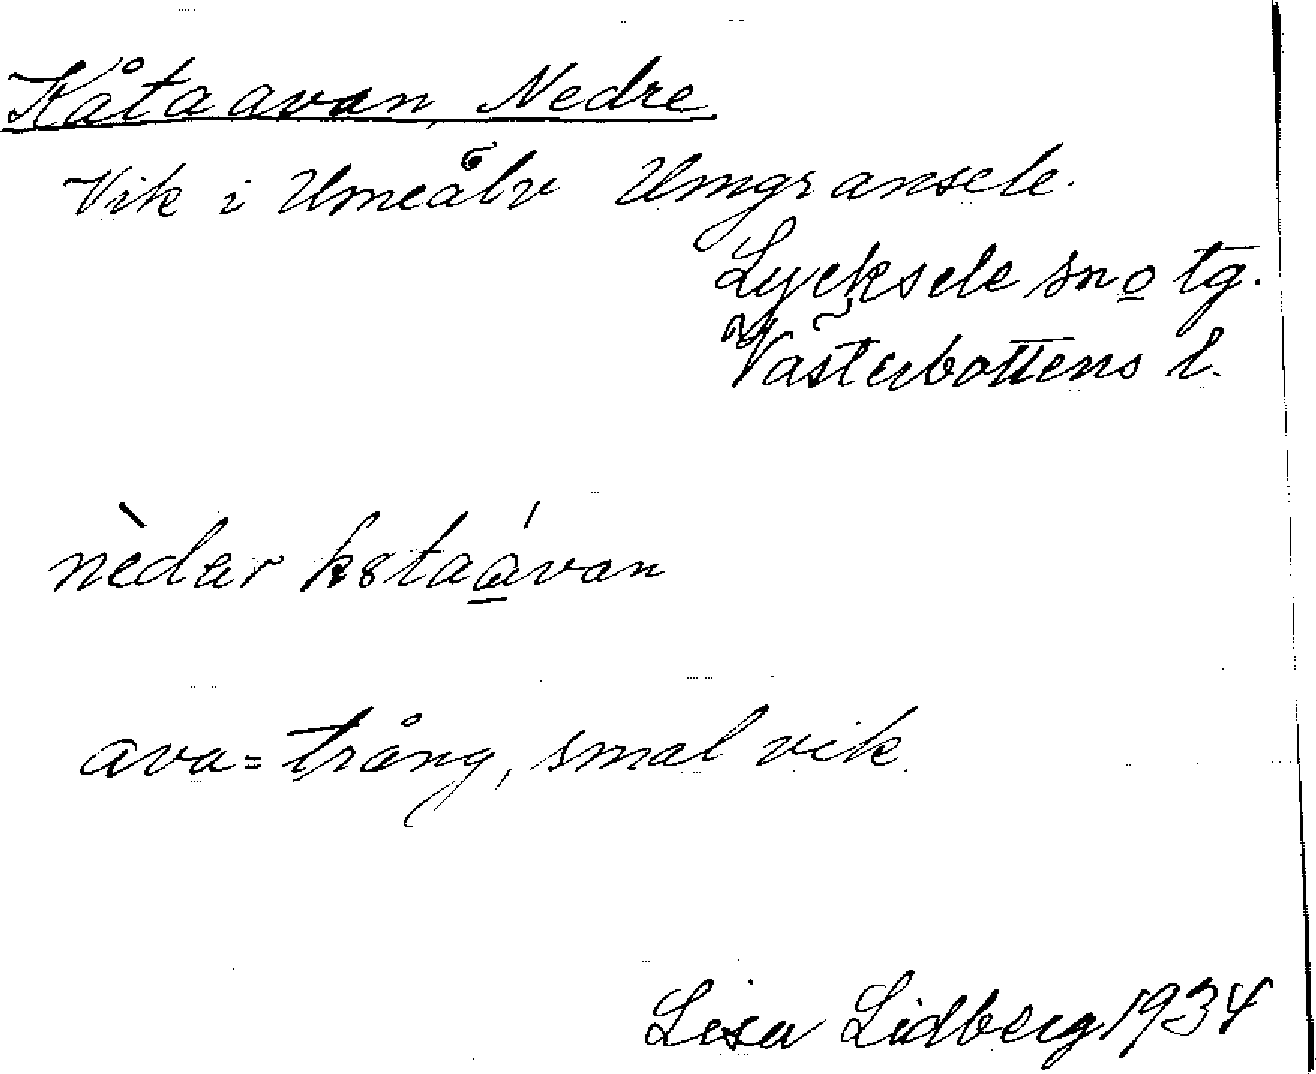 Kåtaavan, Nedre
Vik i Umeälv Umgransele.
Lycksele sn o tg.
Västerbottens l.
nèdær kståávan
ava = trång, smal vik.
Lisa Lidberg 1934